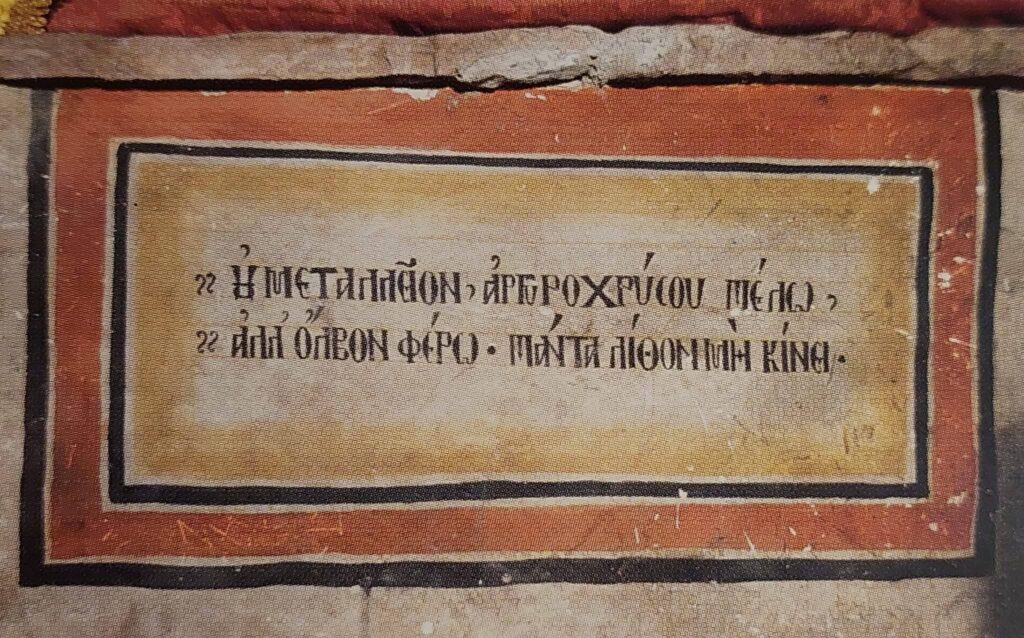 οὐ μεταλλεῖον, ἀργυροχρύσου πέλω,
ἀλλ᾽ ὄλβον φέρω · πάντα λίθον μὴ κίνει ·